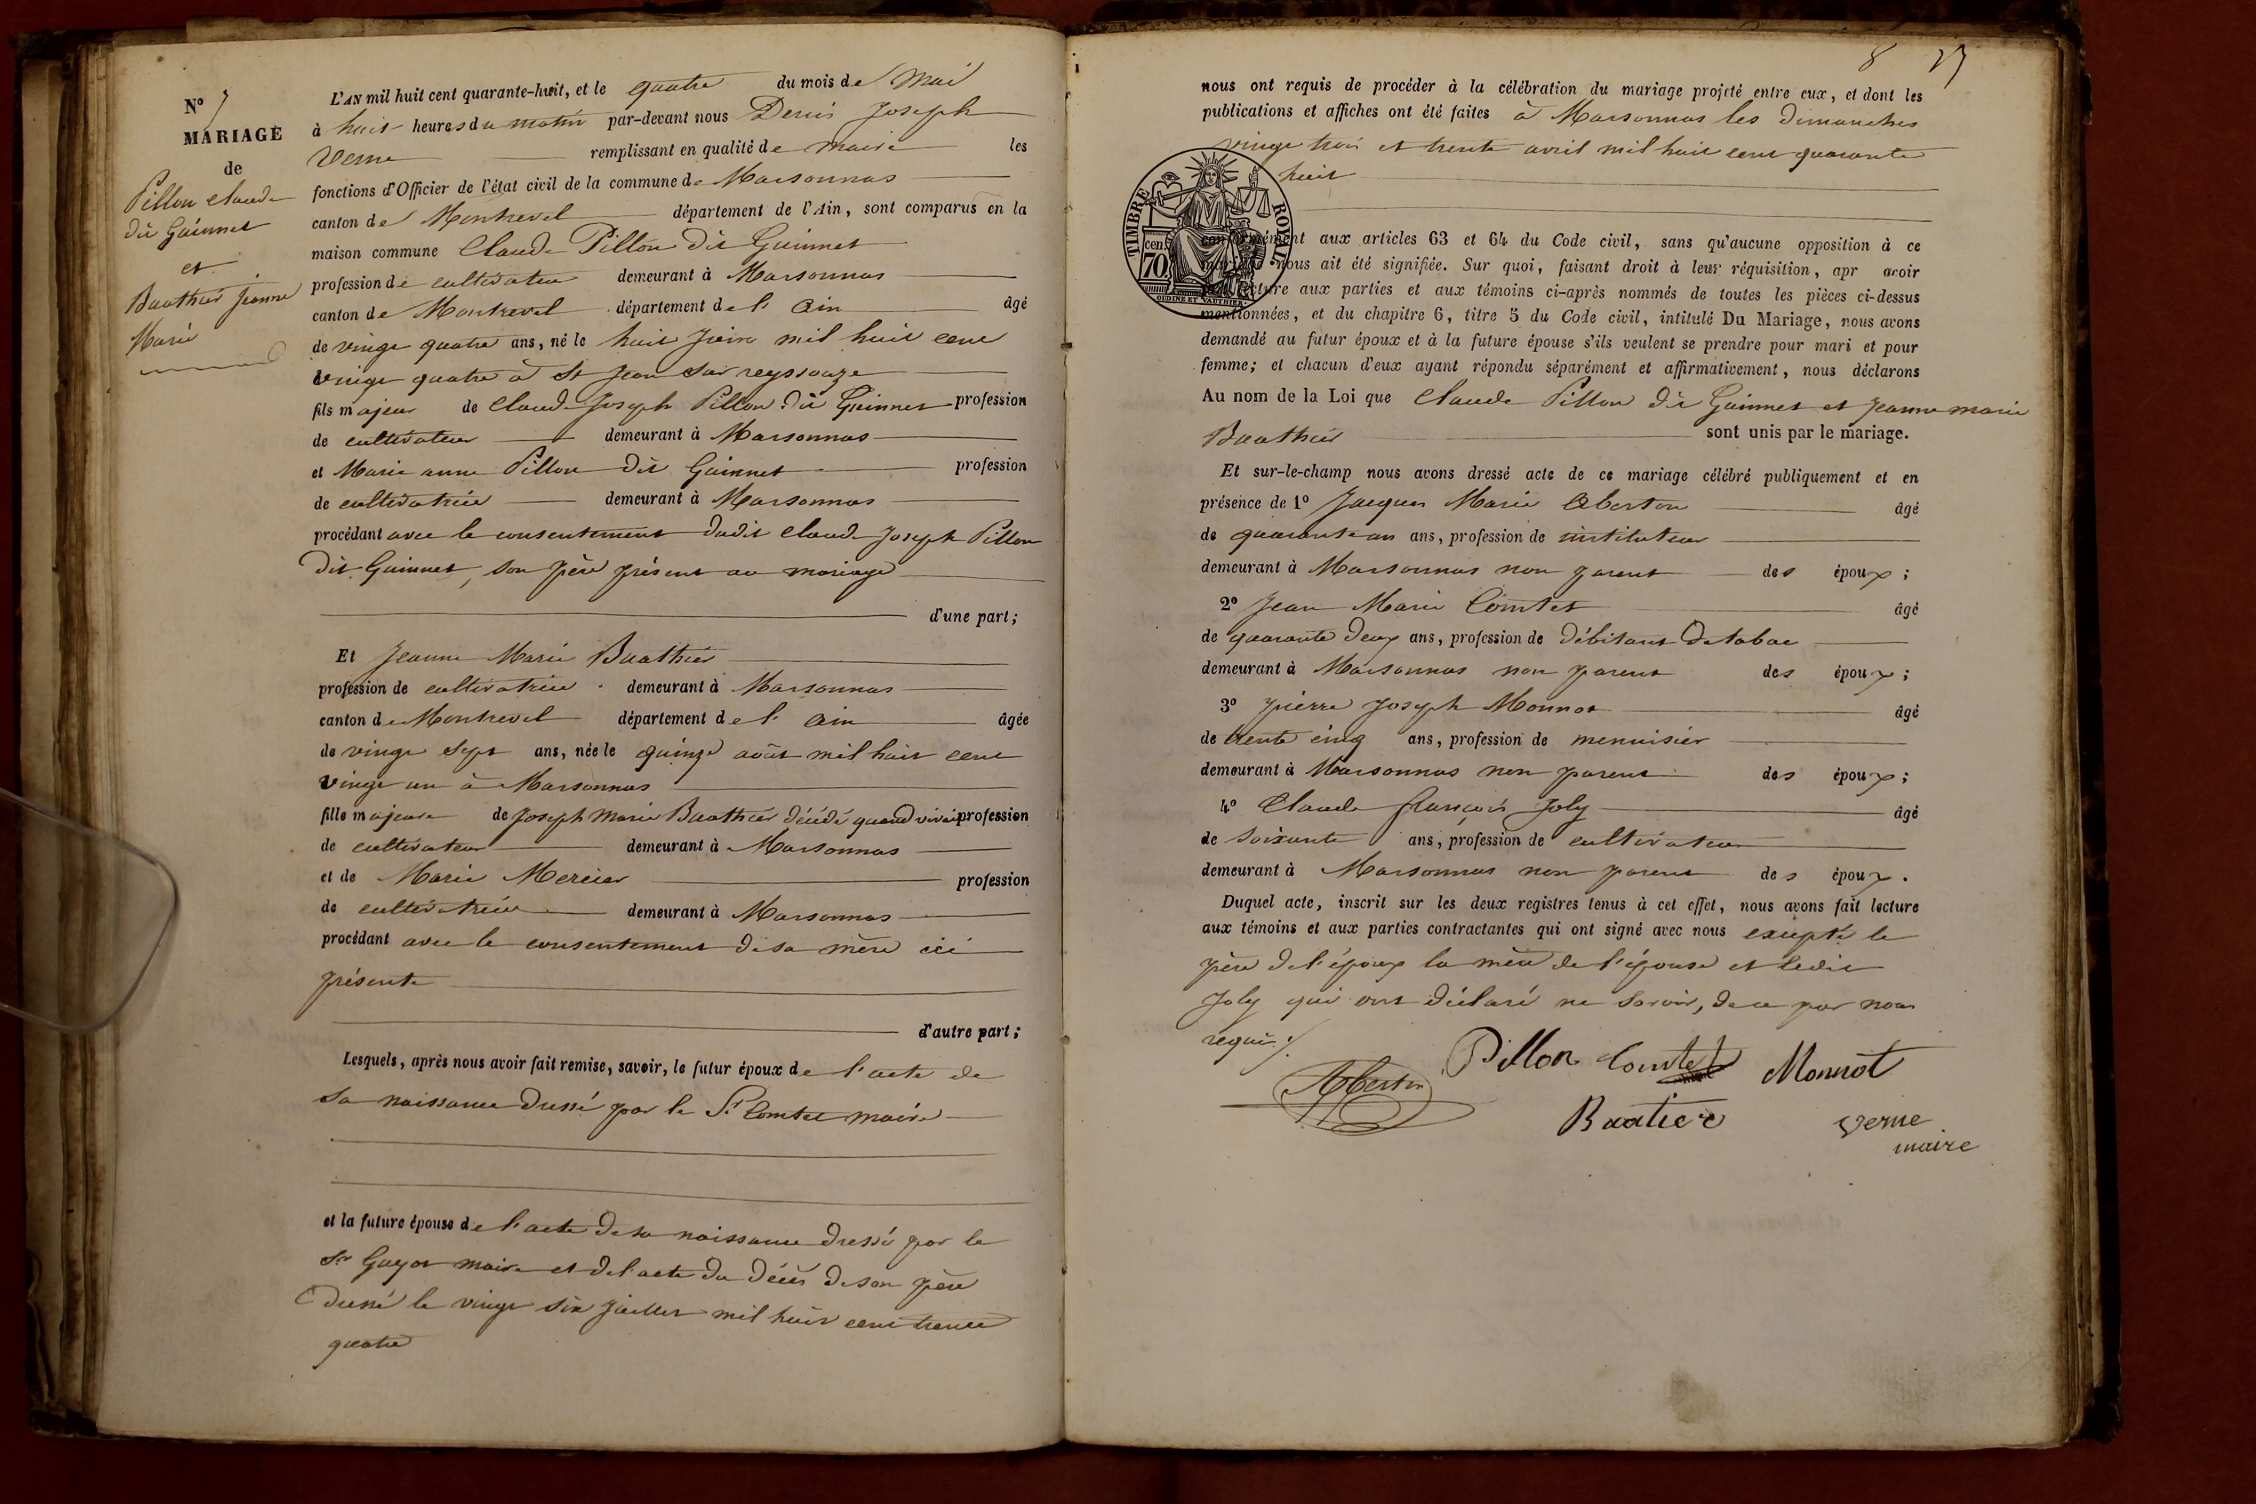 N° 7
MARIAGE
de
Pillon Claude
dit Guinnet
et
Buathier Jeanne
Marie
L'AN mil huit cent quarante-huit, et le quatre du mois de Mai
à huit heures du matin par-devant nous Denis Joseph
Verne remplissant en qualité de maire les
fonctions d'Officier de l'état civil de la commune de Marsonnas
canton de Montrevel département de l'Ain, sont comparus en la
maison commune Claude Pillon dit Guinnet
profession de cultivateur demeurant à Marsonnas
canton de Montrevel département de l'Ain âgé
de vingt quatre ans, né le huit juin mil huit cent
vingt quatre à St Jean sur reyssouze
fils majeur de Claude Joseph Pillon dit Guinnet profession
de cultivateur demeurant à Marsonnas
et Marie anne Pillon dit Guinnet profession
de cultivatrice demeurant à Marsonnas
procédant avec le consentement dudit Claude Joseph Pillon
dit Guinnet, son père présent au mariage
d'une part;
Et Jeanne Marie Buathier
profession de cultivatrice demeurant à Marsonnas
canton de Montrevel département de l'Ain âgée
de vingt sept ans, née le quinze août mil huit cent
vingt un à Marsonnas
fille majeure de Joseph Marie Buathier décédé quand vivait profession
de cultivateur demeurant à Marsonnas
et de Marie Mercier profession
de cultivatrice demeurant à Marsonnas
procédant avec le consentement de sa mère ici
présente
d'autre part;
Lesquels, après nous avoir fait remise, savoir, le futur époux de l'acte de
sa naissance dressé par le Sr Comtet maire
et la future épouse de l'acte de sa naissance dressé par le
Sr Guyot maire et de l'acte du décès de son père
dressé le vingt six juillet mil huit cent trente
quatre
8 27
nous ont requis de procéder à la célébration du mariage projeté entre eux, et dont les
publications et affiches ont été faites à Marsonnas les dimanches
vingt trois et trente avril mil huit cent quarante
huit
TIMBRE ROYAL
70 cen.
OUDINÉ ET VAUTHIER
conformément aux articles 63 et 64 du Code civil, sans qu'aucune opposition à ce
mariage nous ait été signifiée. Sur quoi, faisant droit à leur réquisition, apr avoir
lecture aux parties et aux témoins ci-après nommés de toutes les pièces ci-dessus
mentionnées, et du chapitre 6, titre 5 du Code civil, intitulé Du Mariage, nous avons
demandé au futur époux et à la future épouse s'ils veulent se prendre pour mari et pour
femme; et chacun d'eux ayant répondu séparément et affirmativement, nous déclarons
Au nom de la Loi que Claude Pillon dit Guinnet et Jeanne marie
Buathier sont unis par le mariage.
Et sur-le-champ nous avons dressé acte de ce mariage célébré publiquement et en
présence de 1° Jacques Marie Aberton âgé
de quarante un ans, profession de instituteur
demeurant à Marsonnas non parent des époux;
2° Jean Marie Comtet âgé
de quarante deux ans, profession de débitant de tabac
demeurant à Marsonnas non parent des époux;
3° pierre Joseph Monnot âgé
de trente cinq ans, profession de menuisier
demeurant à Marsonnas non parent des époux;
4° Claude françois Joly âgé
de soixante ans, profession de cultivateur
demeurant à Marsonnas non parent des époux.
Duquel acte, inscrit sur les deux registres tenus à cet effet, nous avons fait lecture
aux témoins et aux parties contractantes qui ont signé avec nous excepté le
père de l'époux la mère de l'épouse et ledit
Joly qui ont déclaré ne savoir, de ce par nous
requis.
Pillon Comtet Monnot
Aberton
Buatier Verne
maire